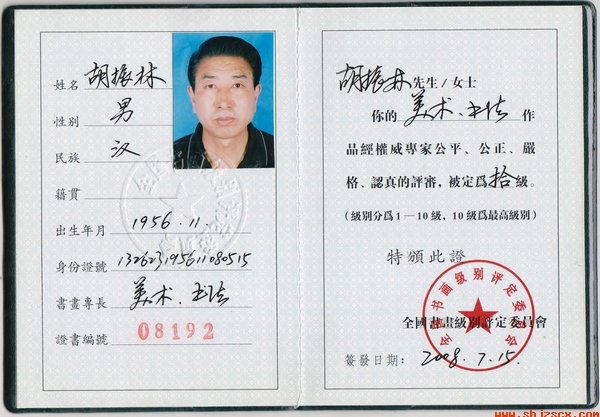 姓名 胡振林
性别 男
民族 汉
籍貫
出生年月 1956.11.
身份證號 132623195611080515
書畫專長 美术.书法
證書編號 08192
胡振林先生/女士
你的 美术.书法 作
品經權威專家公平、公正、嚴
格、認真的評審，被定爲拾級。
（級别分爲1—10級，10級爲最高級别）
特頒此證
全國書畫級别評定委員會
全国书画级别评定委员会
簽發日期：2008.7.15.
www.shjzscx.com